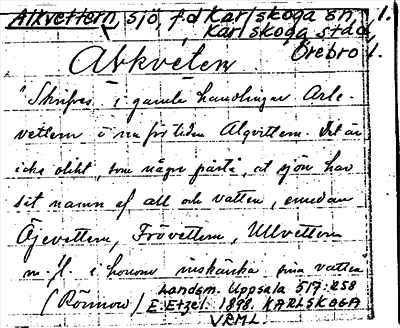 Alkvettern, sjö, f.d. Karlskoga sn 1.
Karlskoga stad,
Örebro l.
Alkvetern
"Skrifves i gamle handlingar Arle-
vettern i nu för tiden Alqvittern. Det är
icke olikt, som någre påstå, at sjön har
sit namn af all och vatten, emedan
Öjevettern, Frövettern, Ullvettern
m.fl. i honom inskänka sina vatten"
(Rönnow) Landsm. Uppsala 517:258
E. Etzel. 1898. KARLSKOGA
VRML.